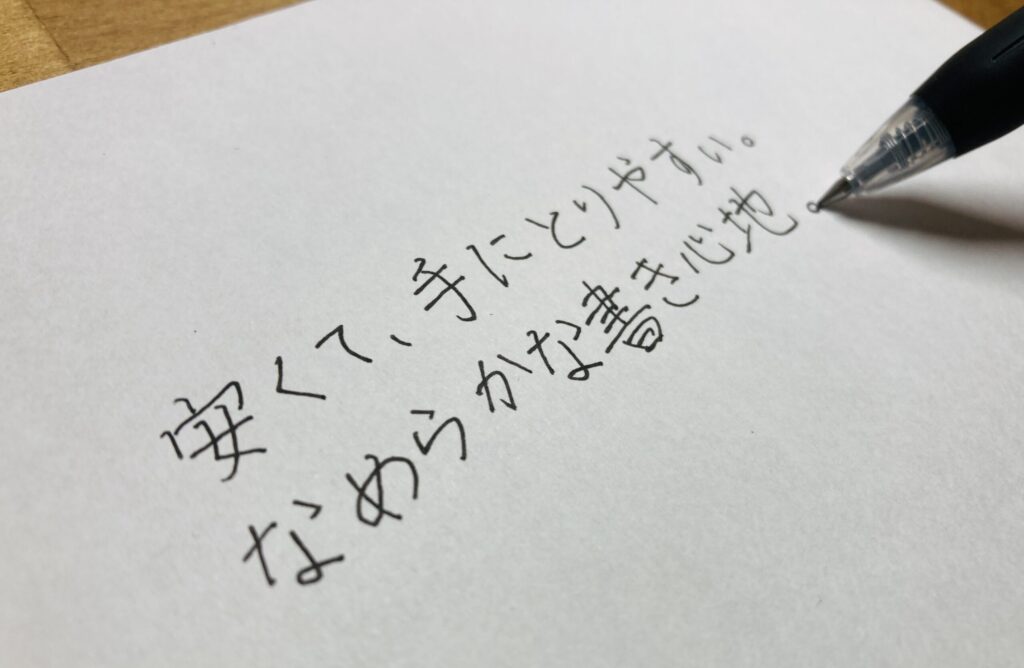 安くて、手にとりやすい。
なめらかな書き心地。